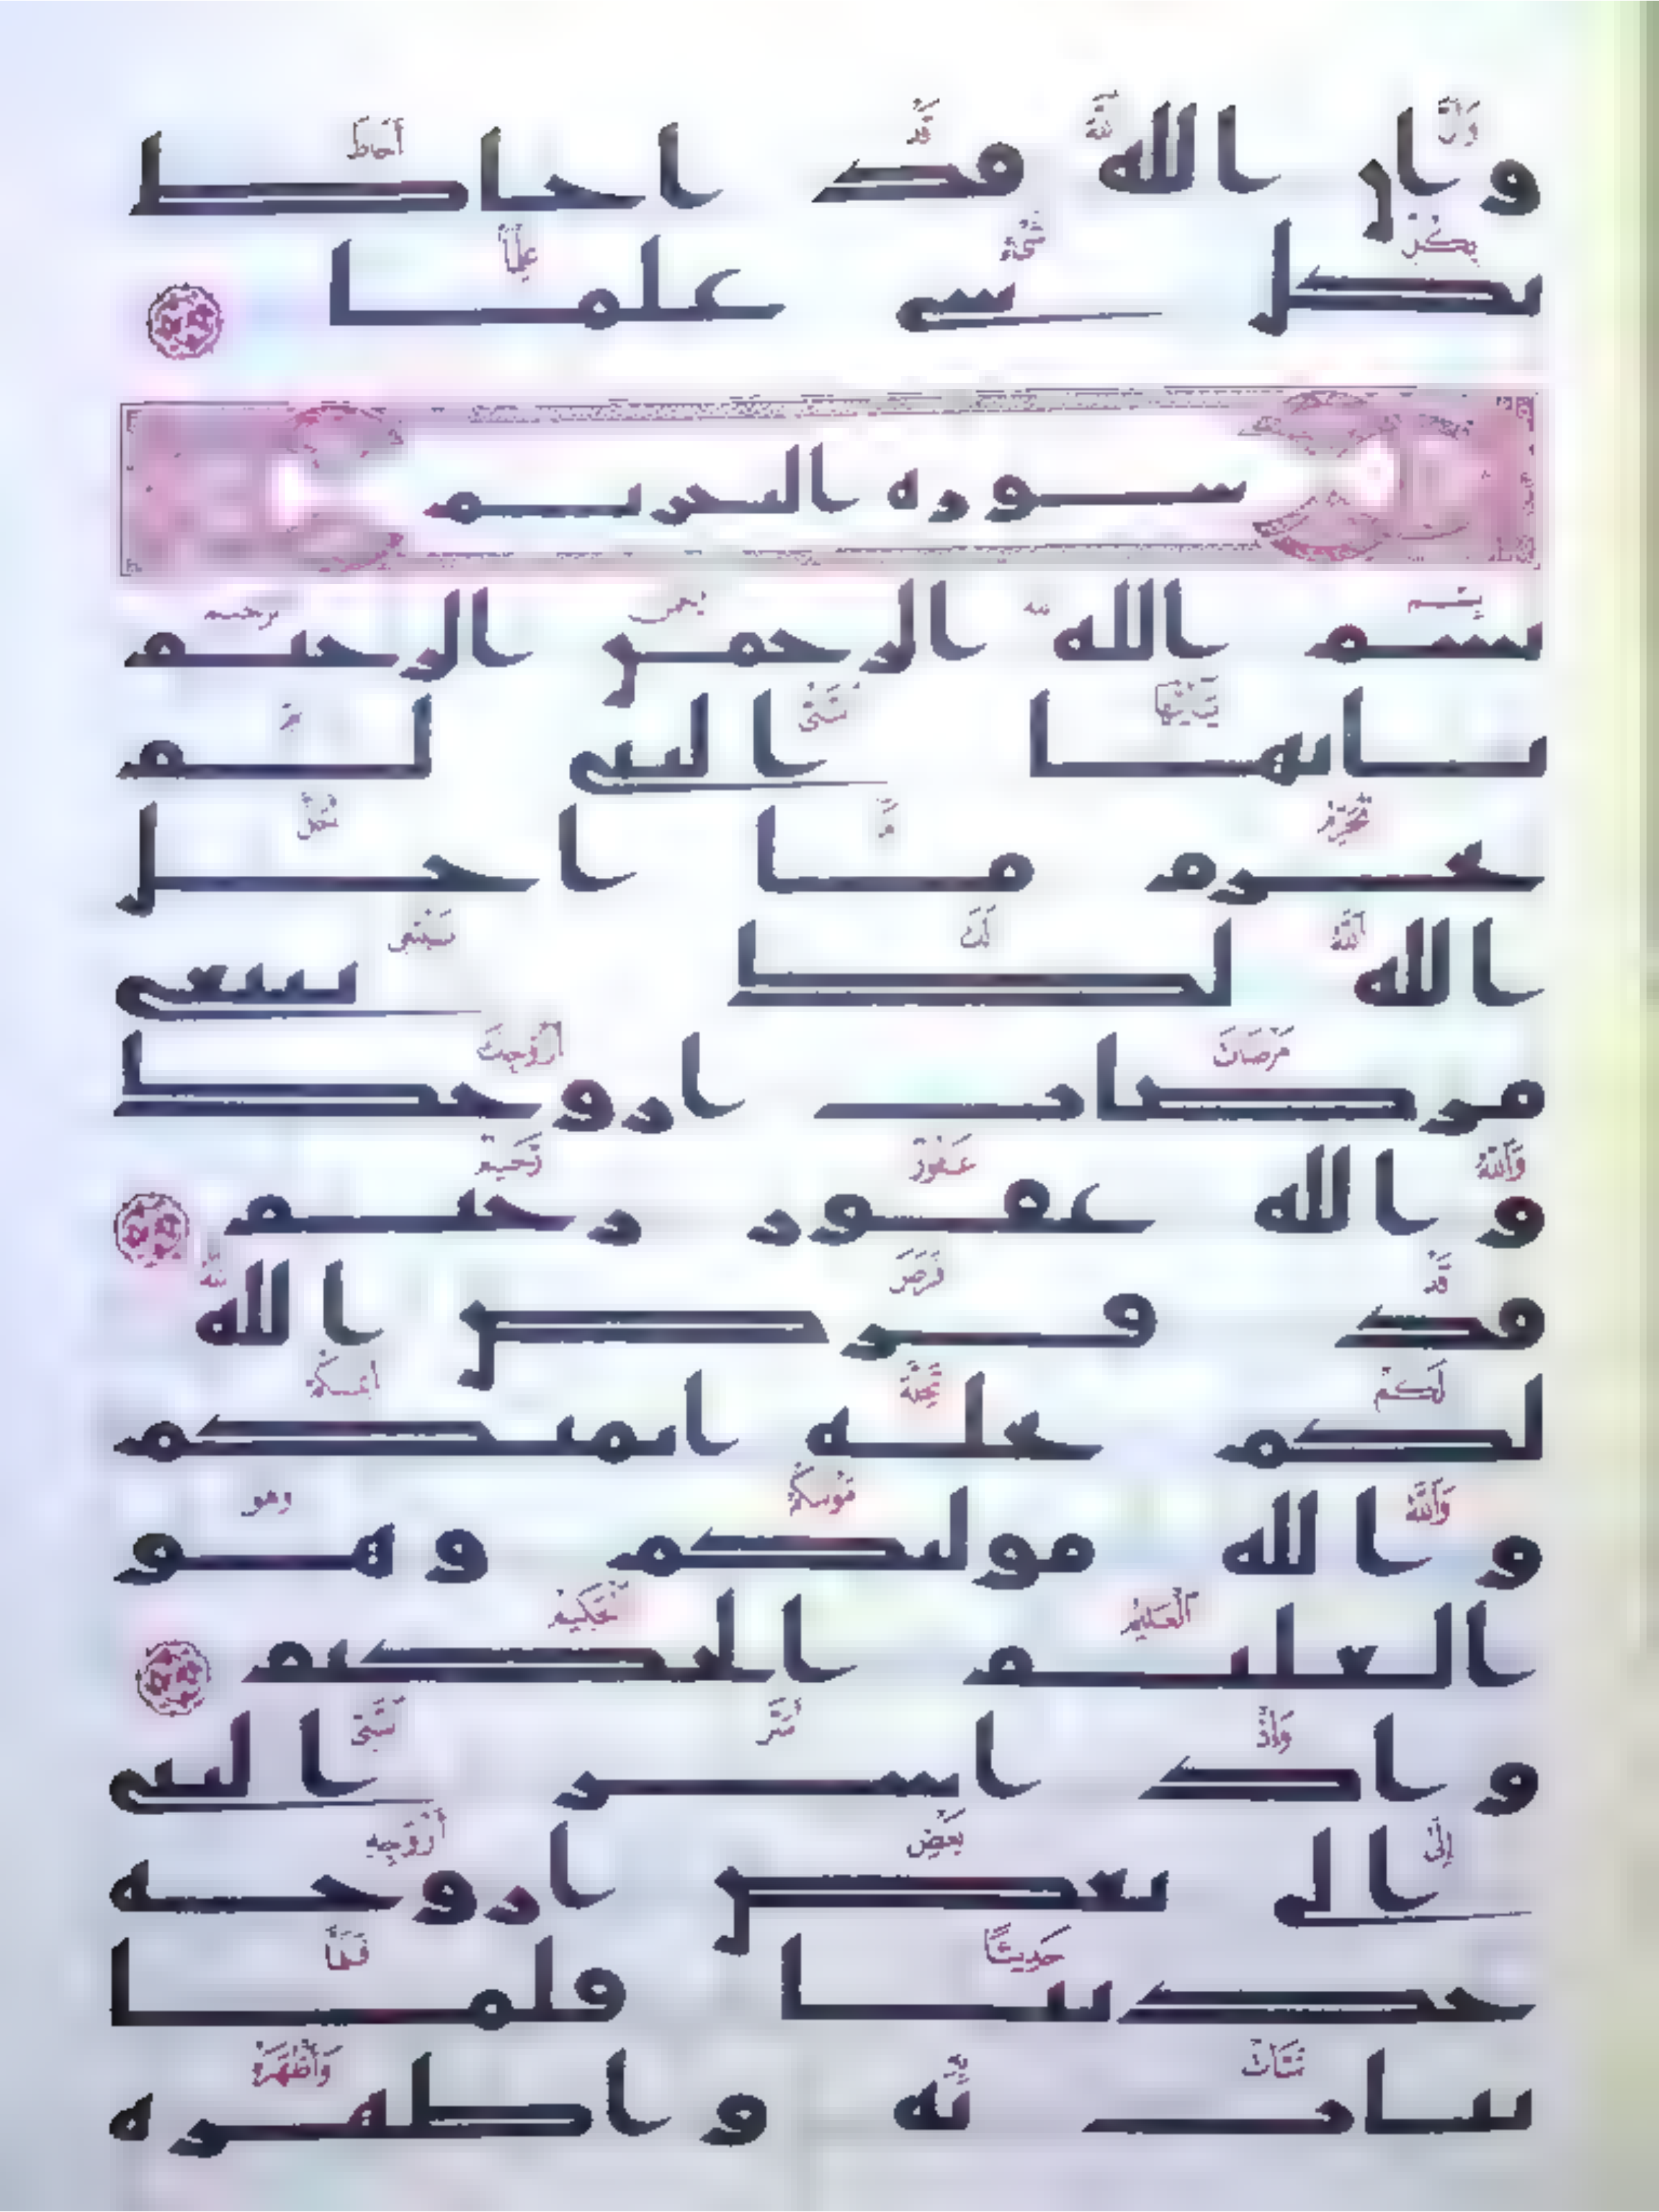 وان الله قد احاط
بكل شى علما
سوره التحريم
بسم الله الرحمن الرحيم
يايها النبى لم
تحرم ما احل
الله لك تبتغى
مرضات ازوجك
والله غفور رحيم
قد فرض الله
لكم تحله ايمنكم
والله موليكم وهو
العليم الحكيم
واذ اسر النبى
الى بعض ازوجه
حديثا فلما
نبات به واظهره